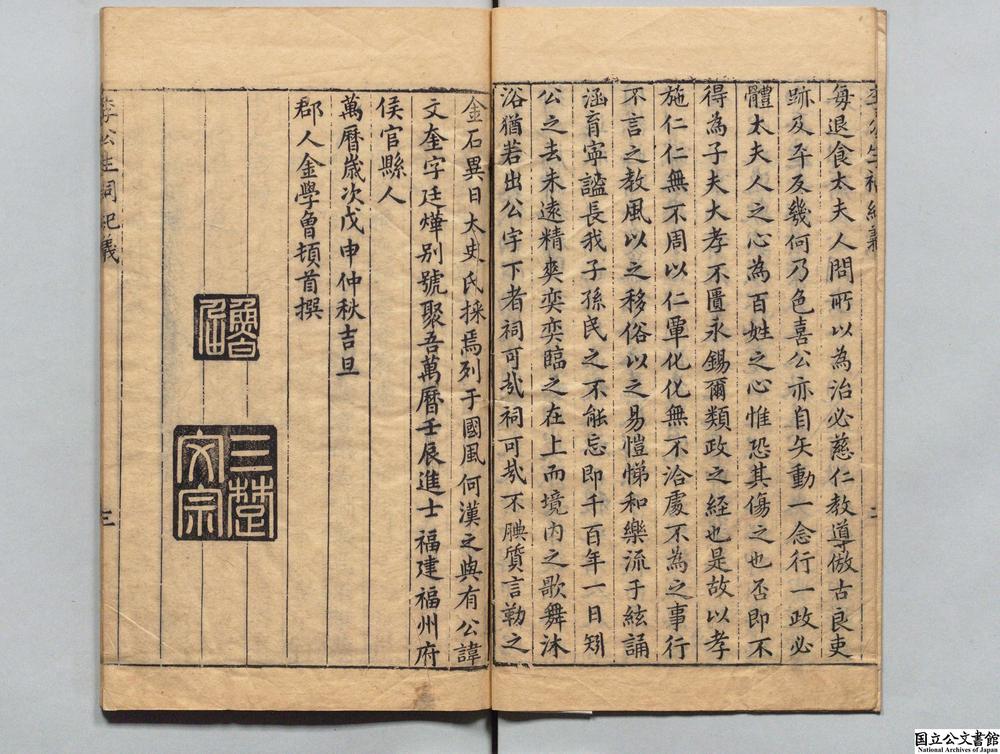 李公生祠紀義
二
每退食太夫人問所以為治必慈仁教道倣古良吏
跡及平反幾何乃色喜公亦自矢動一念行一政必
體太夫人之心為百姓之心惟恐其傷之也否即不
得為子夫大孝不匱永錫爾類政之経也是故以孝
施仁仁無不周以仁覃化化無不洽處不為之事行
不言之教風以之移俗以之易愷悌和樂流于絃誦
涵育寜謐長我子孫民之不能忘即千百年一日矧
公之去未遠精爽奕奕臨之在上而境内之歌舞沐
浴猶若出公宇下者祠可㢤祠可㢤不腆質言勒之
金石異日太史氏採焉列于國風何漢之與有公諱
文奎字廷燁别號聚吾萬曆壬辰進士福建福州府
侯官縣人
萬曆歲次戊申仲秋吉旦
郡人金學曾頓首撰
三楚文宗
李公生祠紀義
三
国立公文書館
National Archives of Japan